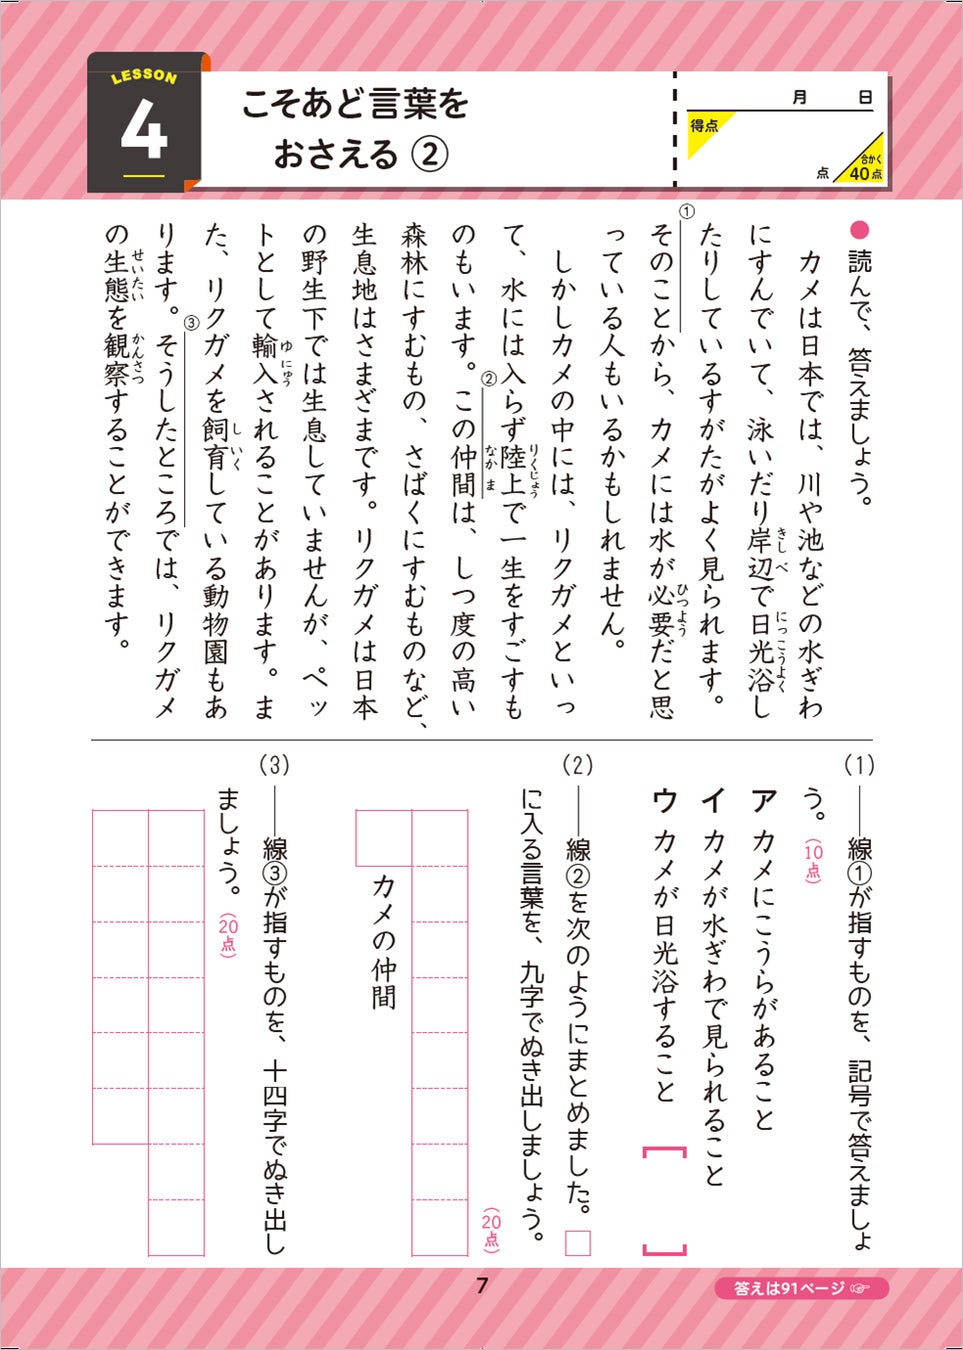 LESSON
4
こそあど言葉を
おさえる ②
月 日
得点
点
合かく
40点
● 読んで、答えましょう。
カメは日本では、川や池などの水ぎわ
にすんでいて、泳いだり岸辺で日光浴し
きしべ にっこうよく
たりしているすがたがよく見られます。
①
そのことから、カメには水が必要だと思
ひつよう
っている人もいるかもしれません。
しかしカメの中には、リクガメといっ
て、水には入らず陸上で一生をすごすも
りくじょう
のもいます。この仲間は、しつ度の高い
② なかま
森林にすむもの、さばくにすむものなど、
生息地はさまざまです。リクガメは日本
の野生下では生息していませんが、ペッ
トとして輸入されることがあります。ま
ゆにゅう
た、リクガメを飼育している動物園もあ
しいく
ります。そうしたところでは、リクガメ
③
の生態を観察することができます。
せいたい かんさつ
(1) ──線①が指すものを、記号で答えましょ
う。(10点)
ア カメにこうらがあること
イ カメが水ぎわで見られること
ウ カメが日光浴すること
(2) ──線②を次のようにまとめました。□
に入る言葉を、九字でぬき出しましょう。
(20点)
カメの仲間
(3) ──線③が指すものを、十四字でぬき出し
ましょう。(20点)
7
答えは91ページ ☞